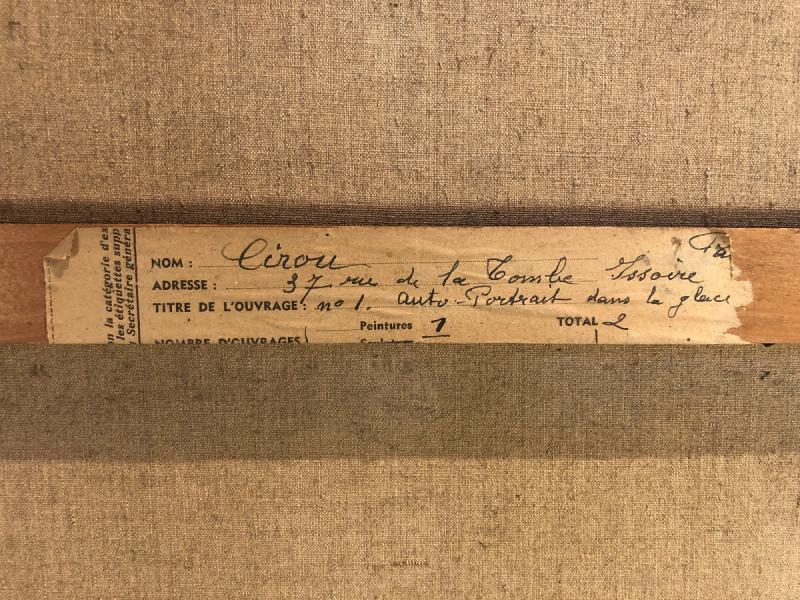 on la catégorie d'ex
les étiquettes supp
Secrétaire généra
NOM : Cirou
ADRESSE : 37 rue de la Tombe Issoire
TITRE DE L'OUVRAGE : nº 1. Auto-Portrait dans la glace
Peintures 1 TOTAL 2
NOMBRE D'OUVRAGES